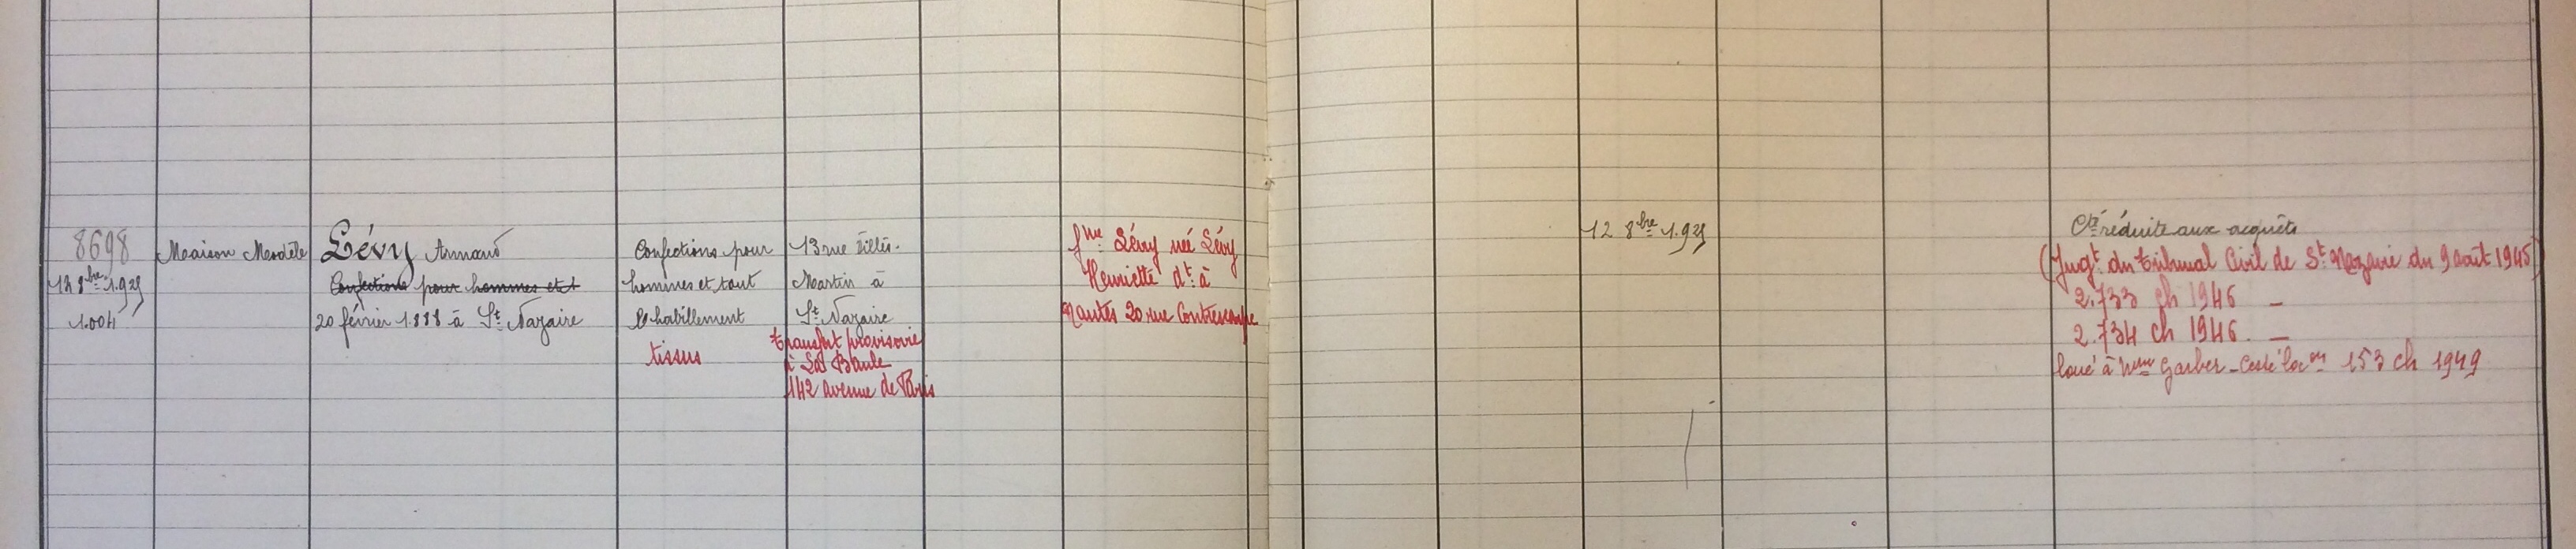 8698
12 8bre 1.925
1.004
Maison Modèle
Lévy Armand
Confections pour hommes et t
20 février 1888 à St Nazaire
Confections pour
hommes et tout
l'habillement
tissus
13 rue Villès-
Martin à
St Nazaire
transfert provisoire
à La Baule
142 avenue de Paris
fme Lévy née Lévy
Henriette dt à
Nantes 20 rue Contrescarpe
12 8bre 1.925
Cté réduite aux acquêts
(Jugt du tribunal Civil de St Nazaire du 9 août 1945)
2.733 ch 1946 _
2.734 ch 1946. _
loué à Mme Garber - Cessé locon 153 ch 1949